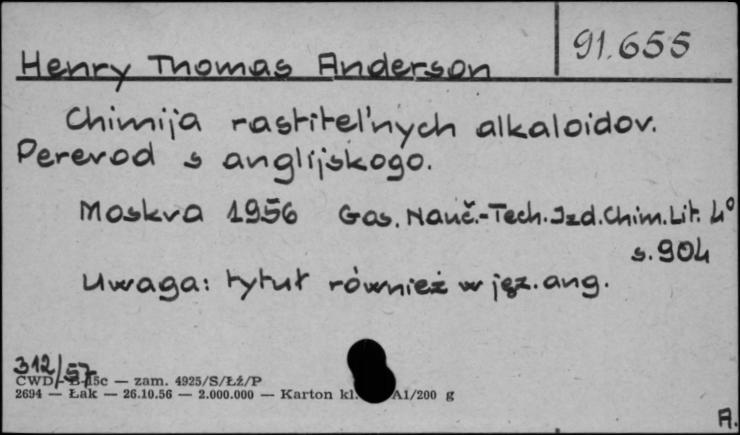 91.655
Henry Thomas Anderson
Chimija rastitel'nych alkaloidov.
Perevod s anglijskogo.
Moskva 1956 Gos. Nauč.-Tech. Izd. Chim. Lit. 4°
s. 904
Uwaga: tytuł również w jęz. ang.
312/57
CWD 15c — zam. 4925/S/Łź/P
2694 — Łak — 26.10.56 — 2.000.000 — Karton kl. A1/200 g
A.